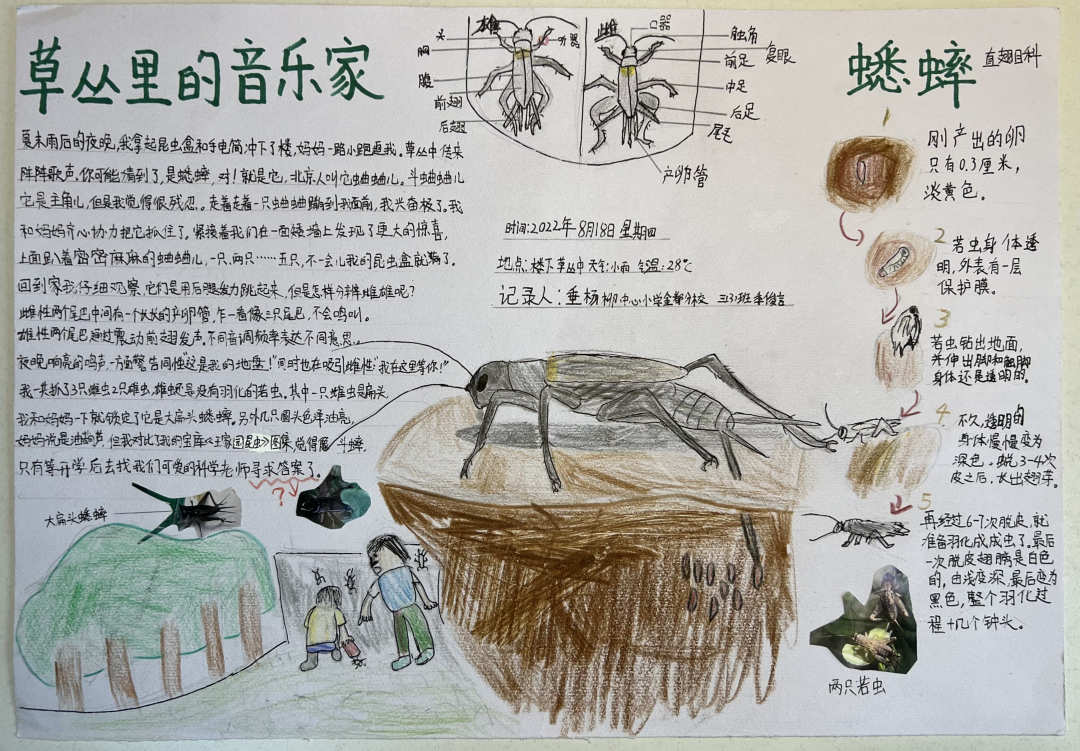 草丛里的音乐家
夏末雨后的夜晚,我拿起昆虫盒和手电筒,冲下了楼,妈妈一路小跑追我。草丛中传来
阵阵歌声。你可能猜到了,是蟋蟀,对!就是它,北京人叫它蛐蛐儿。斗蛐蛐儿
它是主角儿,但是我觉得很残忍。走着走着一只蛐蛐蹦到我面前,我兴奋极了。我
和妈妈齐心协力把它抓住了。紧接着我们在一面矮墙上发现了更大的惊喜,
上面趴着密密麻麻的蛐蛐儿,一只、两只……五只,不一会儿我的昆虫盒就满了。
回到家我仔细观察,它们是用后腿发力跳起来,但是怎样分辨雌雄呢?
雌性两个尾巴中间有一个长长的产卵管,乍一看像三只尾巴,不会鸣叫。
雄性两个尾巴通过震动前翅发声。不同音调频率表达不同意思。
夜晚响亮的鸣声,一方面警告同性"这是我的地盘!"同时也在吸引雌性:"我在这里等你!"
我一共抓了3只雌虫2只雄虫,雄虫还是没有羽化的若虫。其中一只雌虫是扁头,
我和妈妈一下就锁定了它是大扁头蟋蟀。另外几只圆头色泽油亮,
妈妈说是油葫芦,但我对比了我的宝库《王家国昆虫》图集,觉得像斗蟀,
只有等开学后去找我们可爱的科学老师寻求答案了。
?
大扁头蟋蟀
雄
头
胸
腹
前翅
后翅
听器
雌
口器
触角
复眼
前足
中足
后足
尾毛
产卵管
时间:2022年8月18日 星期四
地点:楼下草丛中 天气:小雨 气温:28℃
记录人:垂杨柳中心小学金都分校 三(3)班 李俊言
蟋蟀 直翅目科
1
刚产出的卵
只有0.3厘米,
淡黄色。
2
若虫身体透
明,外表有一层
保护膜。
3
若虫钻出地面,
并伸出脚和触脚
身体还是透明的。
4
不久,透明的
身体慢慢变为
深色。蜕3-4次
皮之后,长出翅芽。
5
再经过6-7次脱皮,就
准备羽化成成虫了,最后
一次脱皮翅膀是白色
的,由浅变深,最后变为
黑色,整个羽化过
程十几个钟头。
两只若虫